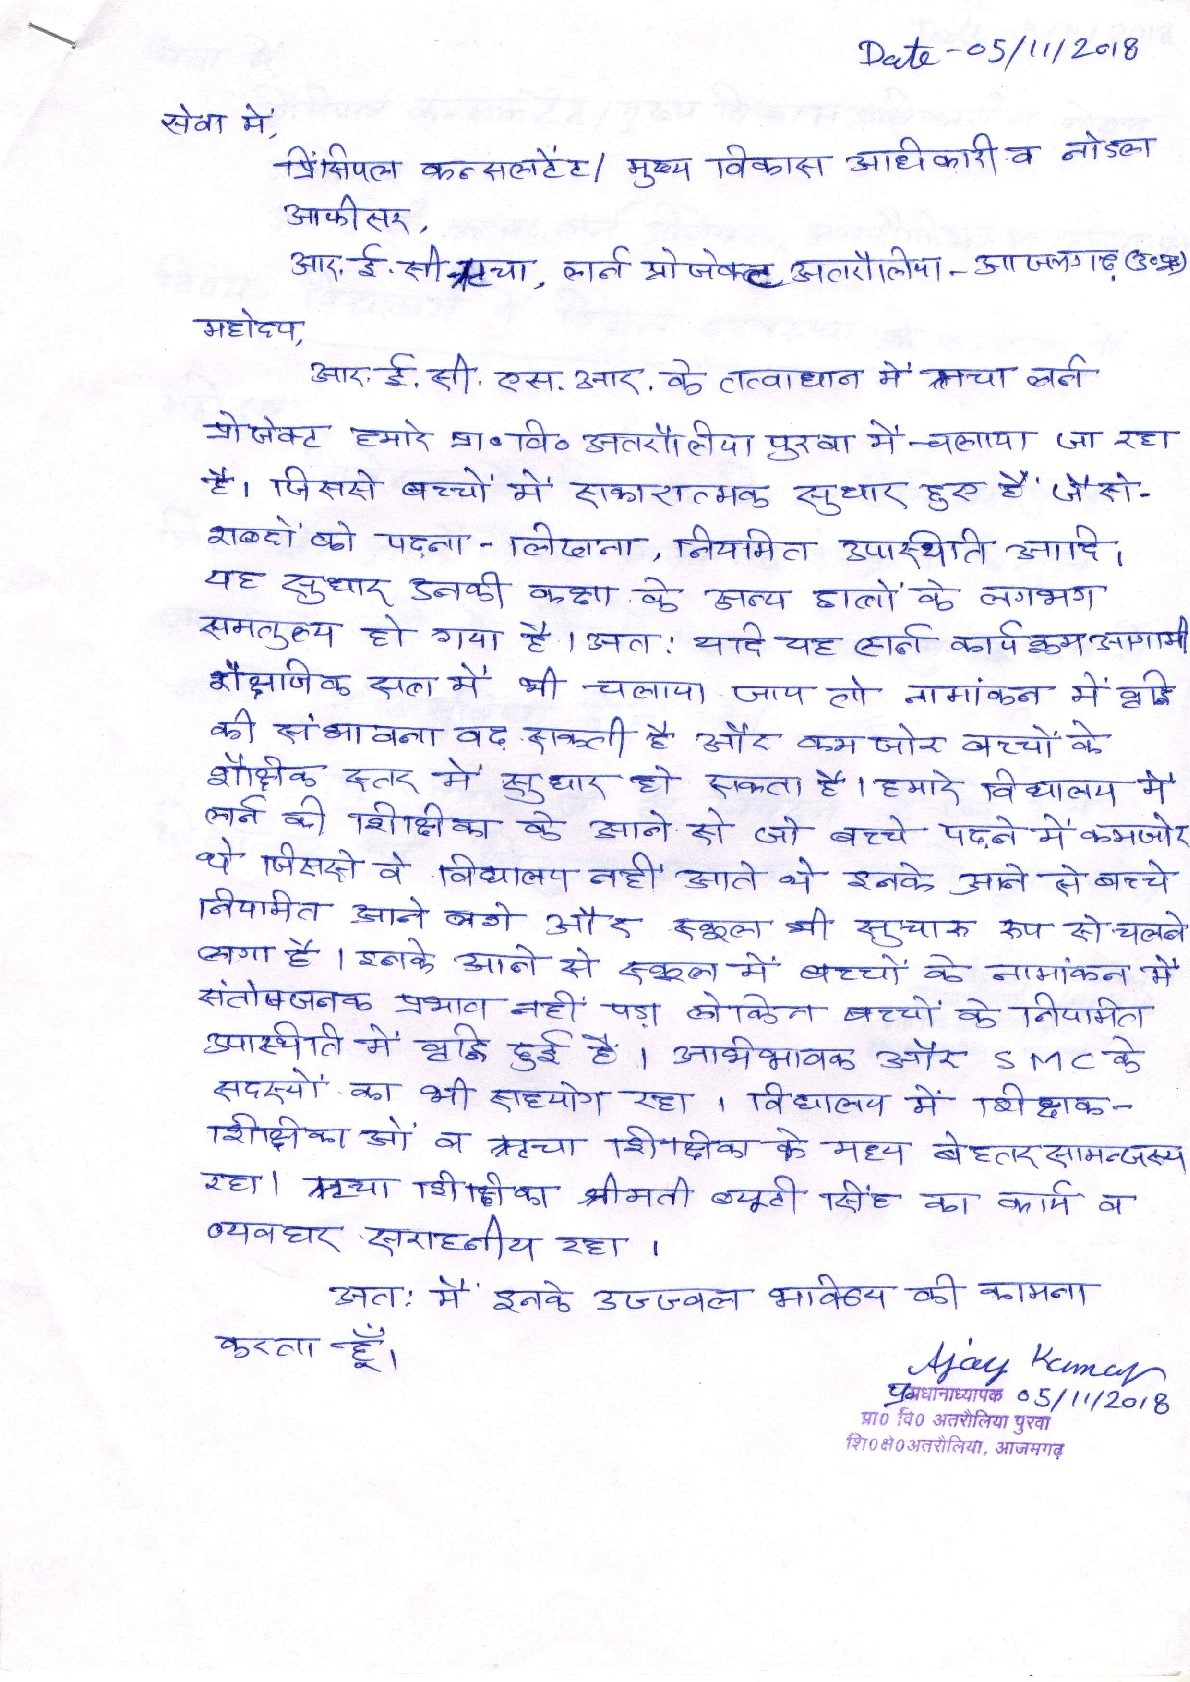 Date - 05/11/2018
सेवा में,
प्रिंसिपल कन्सलटेंट/ मुख्य विकास अधिकारी व नोडल
आफीसर,
आर. ई. सी. ऋचा, लर्न प्रोजेक्ट, अतरौलिया - आजमगढ़ (उ०प्र०)
महोदय,
आर. ई. सी. एस. आर. के तत्वाधान में ऋचा लर्न
प्रोजेक्ट हमारे प्रा० वि० अतरौलीया पुरवा में चलाया जा रहा
है। जिससे बच्चों में सकारात्मक सुधार हुए हैं जैसे-
शब्दों को पढ़ना - लिखना, नियमित उपास्थीति आदि।
यह सुधार उनकी कक्षा के अन्य छात्रों के लगभग
समतुल्य हो गया है। अतः यदि यह लर्न कार्यक्रम आगामी
शैक्षणिक सत्र में भी चलाया जाय तो नामांकन में वृद्धि
की संभावना बढ़ सकती है और कमजोर बच्चों के
शैक्षीक स्तर में सुधार हो सकता है। हमारे विद्यालय में
लर्न की शिक्षीका के आने से जो बच्चे पढ़ने में कमजोर
थे जिससे वे विद्यालय नहीं आते थे इनके आने से बच्चे
नियमित आने लगे और स्कूल भी सुचारू रूप से चलने
लगा है। इनके आने से स्कूल में बच्चों के नामांकन में
संतोषजनक प्रभाव नहीं पड़ा लेकिन बच्चों के नियमित
उपास्थीति में वृद्धि हुई है। अभिभावक और SMC के
सदस्यों का भी सहयोग रहा। विद्यालय में शिक्षक-
शिक्षीकाओं व ऋचा शिक्षीका के मध्य बेहतर सामन्जस्य
रहा। ऋचा शिक्षीका श्रीमती ब्यूटी सिंह का कार्य व
व्यवहार सराहनीय रहा।
अतः मैं इनके उज्ज्वल भविष्य की कामना
करता हूँ।
Ajay Kumar
प्रधानाध्यापक 05/11/2018
प्रा० वि० अतरौलिया पुरवा
शि०क्षे०अतरौलिया, आजमगढ़